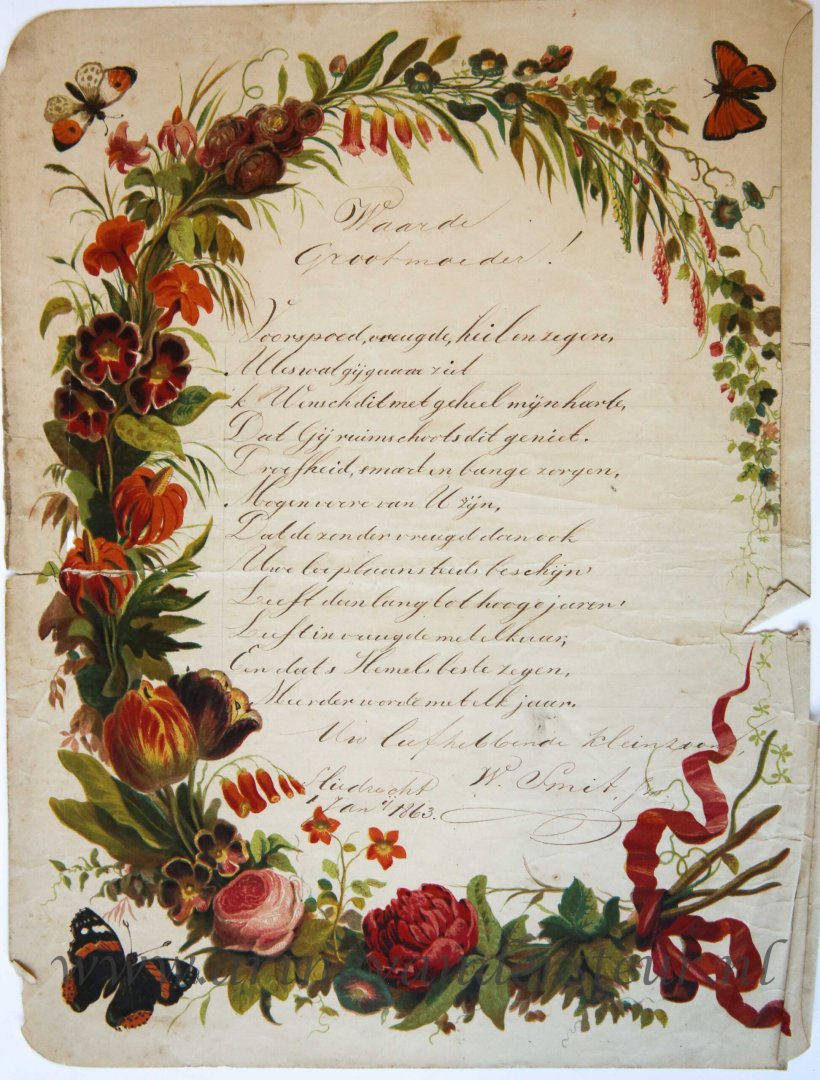 Waarde
Grootmoeder!
Voorspoed, vreugde, heil en zegen,
Alles wat gij gaarne ziet
'k Wensch dit met geheel mijn harte,
Dat Gij ruimschoots dit geniet.
Droefheid, smart en bange zorgen,
Mogen verre van U zijn,
Dat de zonder vreugd dan ook
Uwe loopbaan steeds beschijn'
Leeft dan lang tot hooge jaren'
Leeft in vreugde met elkaar,
En dat s Hemels beste zegen,
Meerder worde met elk jaar.
Uw liefhebbende kleinzoon
W. Smit, Jr.
Sliedrecht
1 Jan 1863.